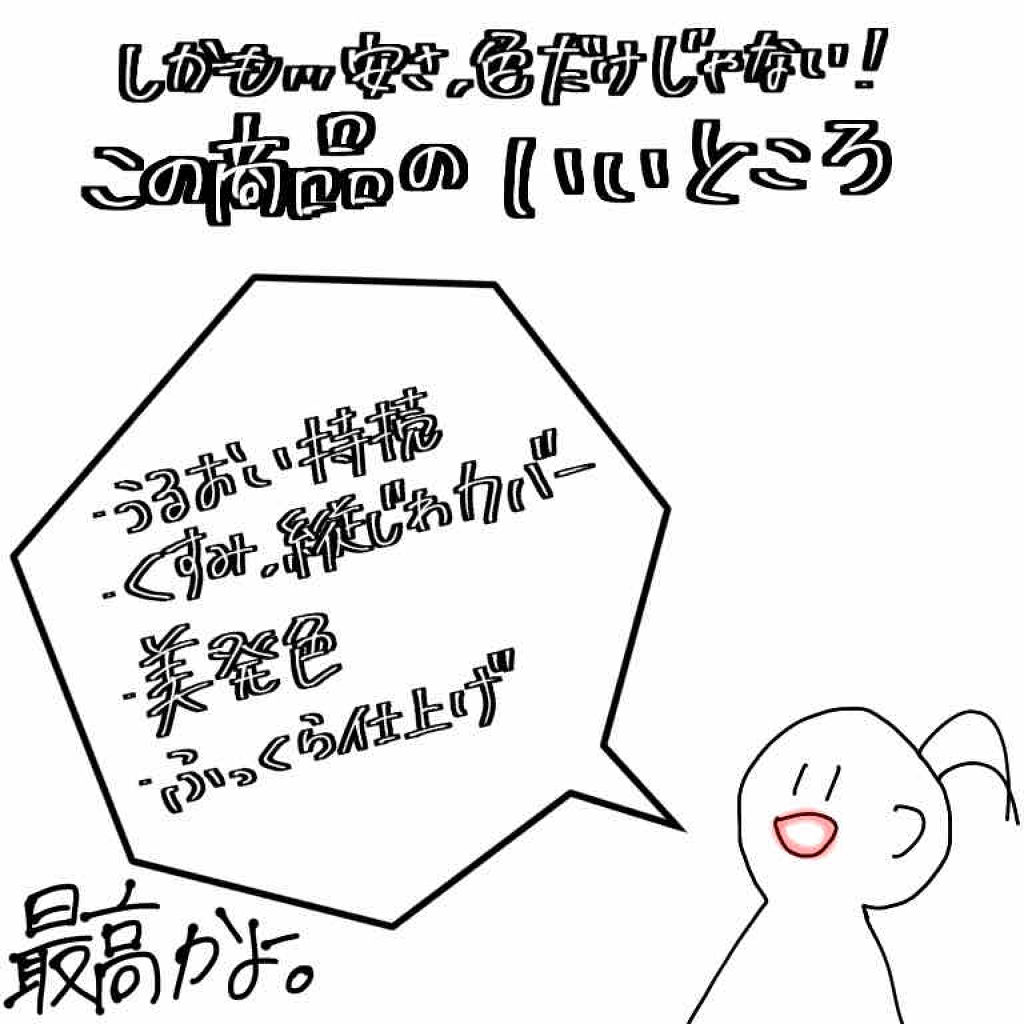 しかも... 安さ、色だけじゃない！
この商品の いいところ
・うるおい持続
・くすみ、縦じわカバー
・美発色
・ふっくら仕上げ
最高かよ。